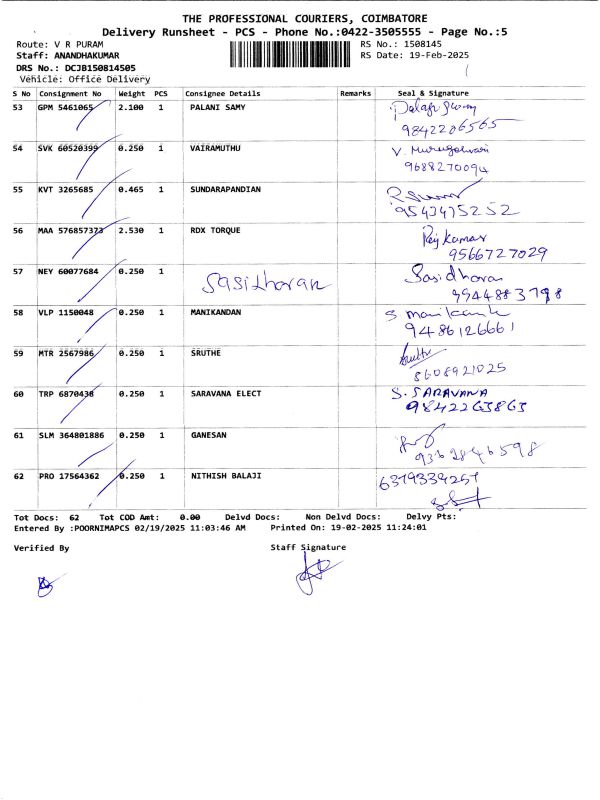 THE PROFESSIONAL COURIERS, COIMBATORE
Delivery Runsheet - PCS - Phone No.:0422-3505555 - Page No.:5
Route: V R PURAM RS No.: 1508145
Staff: ANANDHAKUMAR RS Date: 19-Feb-2025
DRS No.: DCJB150814505
Vehicle: Office Delivery
S No Consignment No Weight PCS Consignee Details Remarks Seal & Signature
53 GPM 5461065 2.100 1 PALANI SAMY
9842206565
54 SVK 60520399 0.250 1 VAIRAMUTHU V. Murugeswari
9688270094
55 KVT 3265685 0.465 1 SUNDARAPANDIAN
9543475252
56 MAA 576857373 2.530 1 RDX TORQUE Rajkumar
9566727029
57 NEY 60077684 0.250 1 Sasidharan Sasidharan
9944883798
58 VLP 1150048 0.250 1 MANIKANDAN S
9486126661
59 MTR 2567986 0.250 1 SRUTHE
8608921025
60 TRP 6870438 0.250 1 SARAVANA ELECT S. SARAVANA
9842263863
61 SLM 364801886 0.250 1 GANESAN
9362846598
62 PRO 17564362 0.250 1 NITHISH BALAJI 6379339257
Tot Docs: 62 Tot COD Amt: 0.00 Delvd Docs: Non Delvd Docs: Delvy Pts:
Entered By :POORNIMAPCS 02/19/2025 11:03:46 AM Printed On: 19-02-2025 11:24:01
Verified By Staff Signature